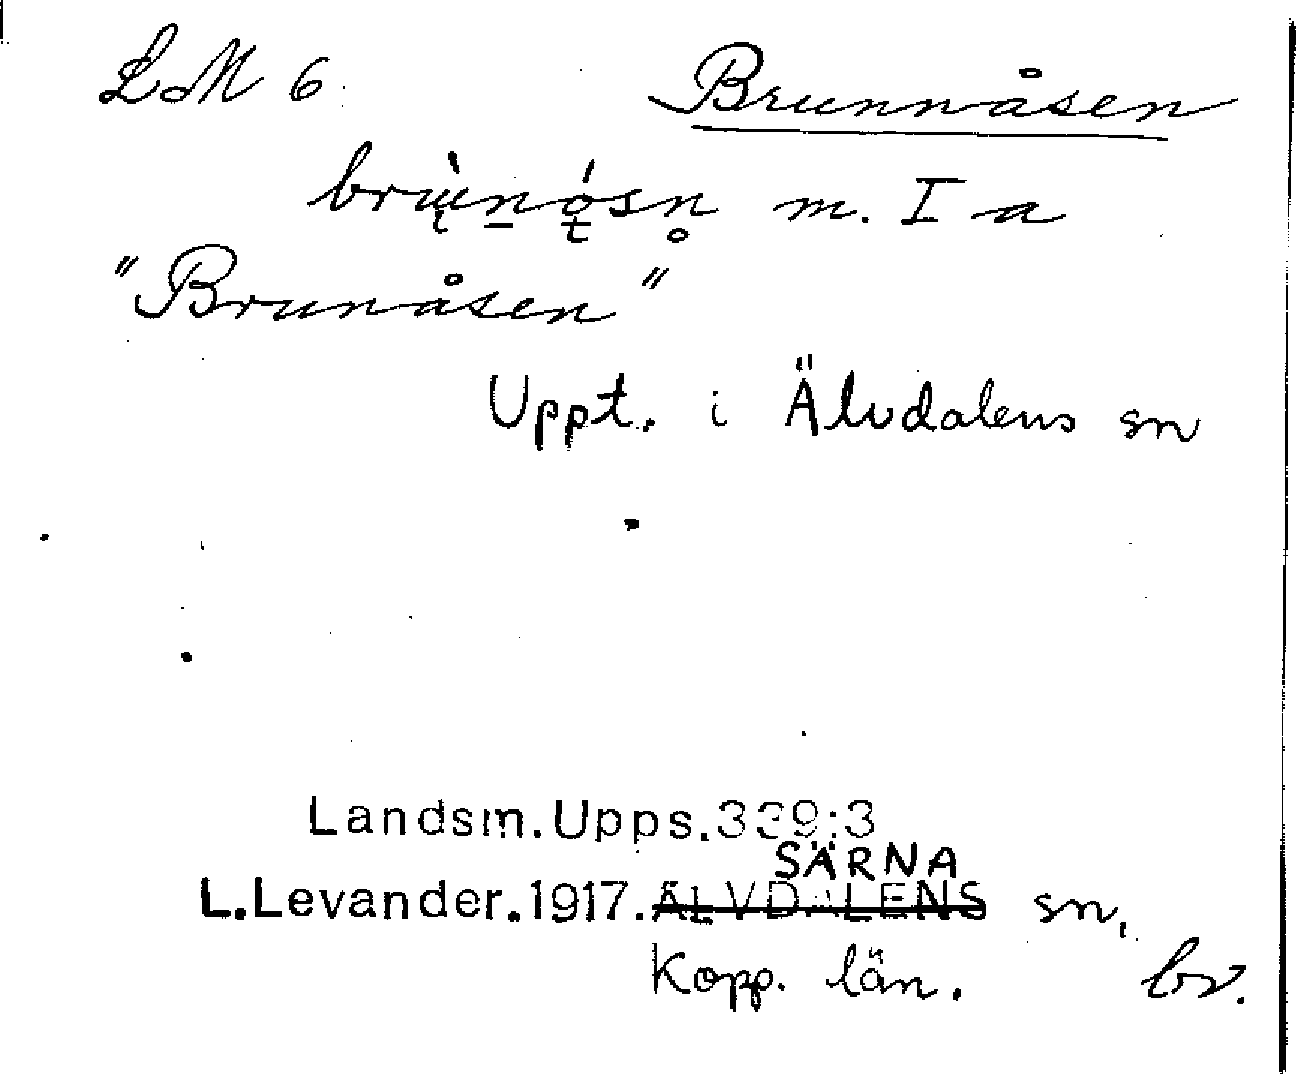 LM 6 Brunnåsen
brùnósn m. I a
"Brunåsen"
Uppt. i Älvdalens sn
Landsm.Upps.339:3
SÄRNA
L.Levander.1917.ÄLVDALENS sn,
Kopp. län. bv.